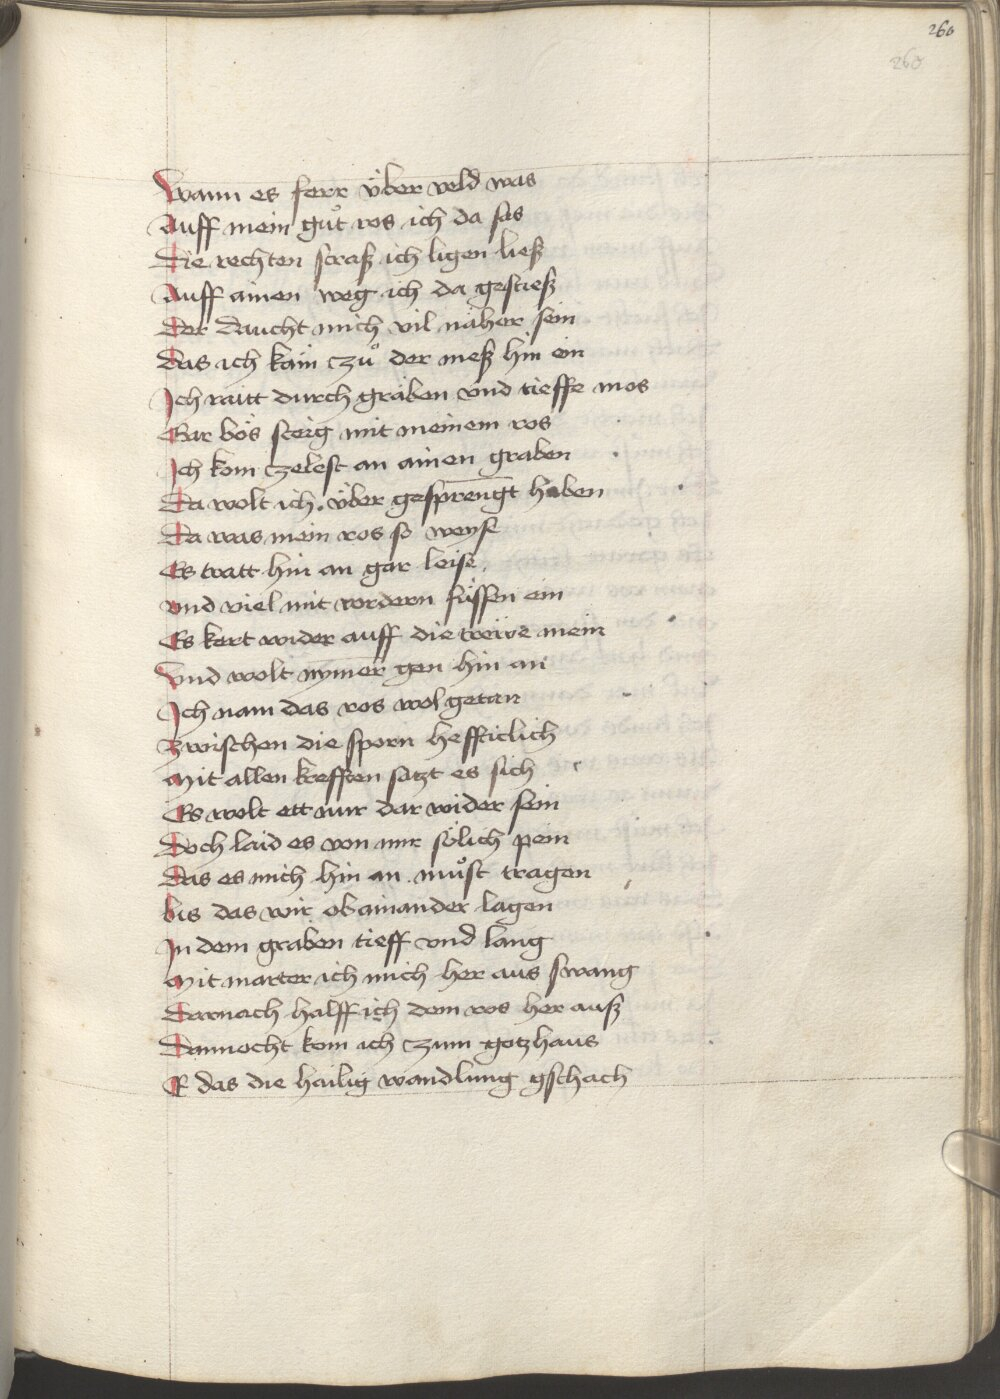 260
260
Wann es ferr über veld was
Auff mein guͦt ros ich da sas
Die rechten straß ich ligen ließ
Auff ainen weg ich da gestieß
Der daucht mich vil näher sein
Das ich käm czuͦ der meß hin ein
Ich raitt durch gräben vnd tieffe mos
Gar bös steig mit meinem ros
Ich kom czelest an ainen graben
Da wolt ich über gesprengt haben
Da was mein ros so weyse
Es tratt hin an gar leise
vnd viel mit vordern füssen ein
Es kert wider auff die trewe mein
Vnd wolt nymer gen hin an
Ich nam das ros wol getan
Zwischen die sporn heffticlich
Mit allen krefften satzt es sich
Es wolt ett nur dar wider sein
Doch laid es von mir sölich pein
Das es mich hin an muͦst tragen
bis das wir ob ainander lagen
In dem graben tieff vnd lang
Mit marter ich mich her aus swang
Darnach halff ich dem ros her auß
Dannocht kom ich czum gotzhaus
E das die hailig wandlung gschach